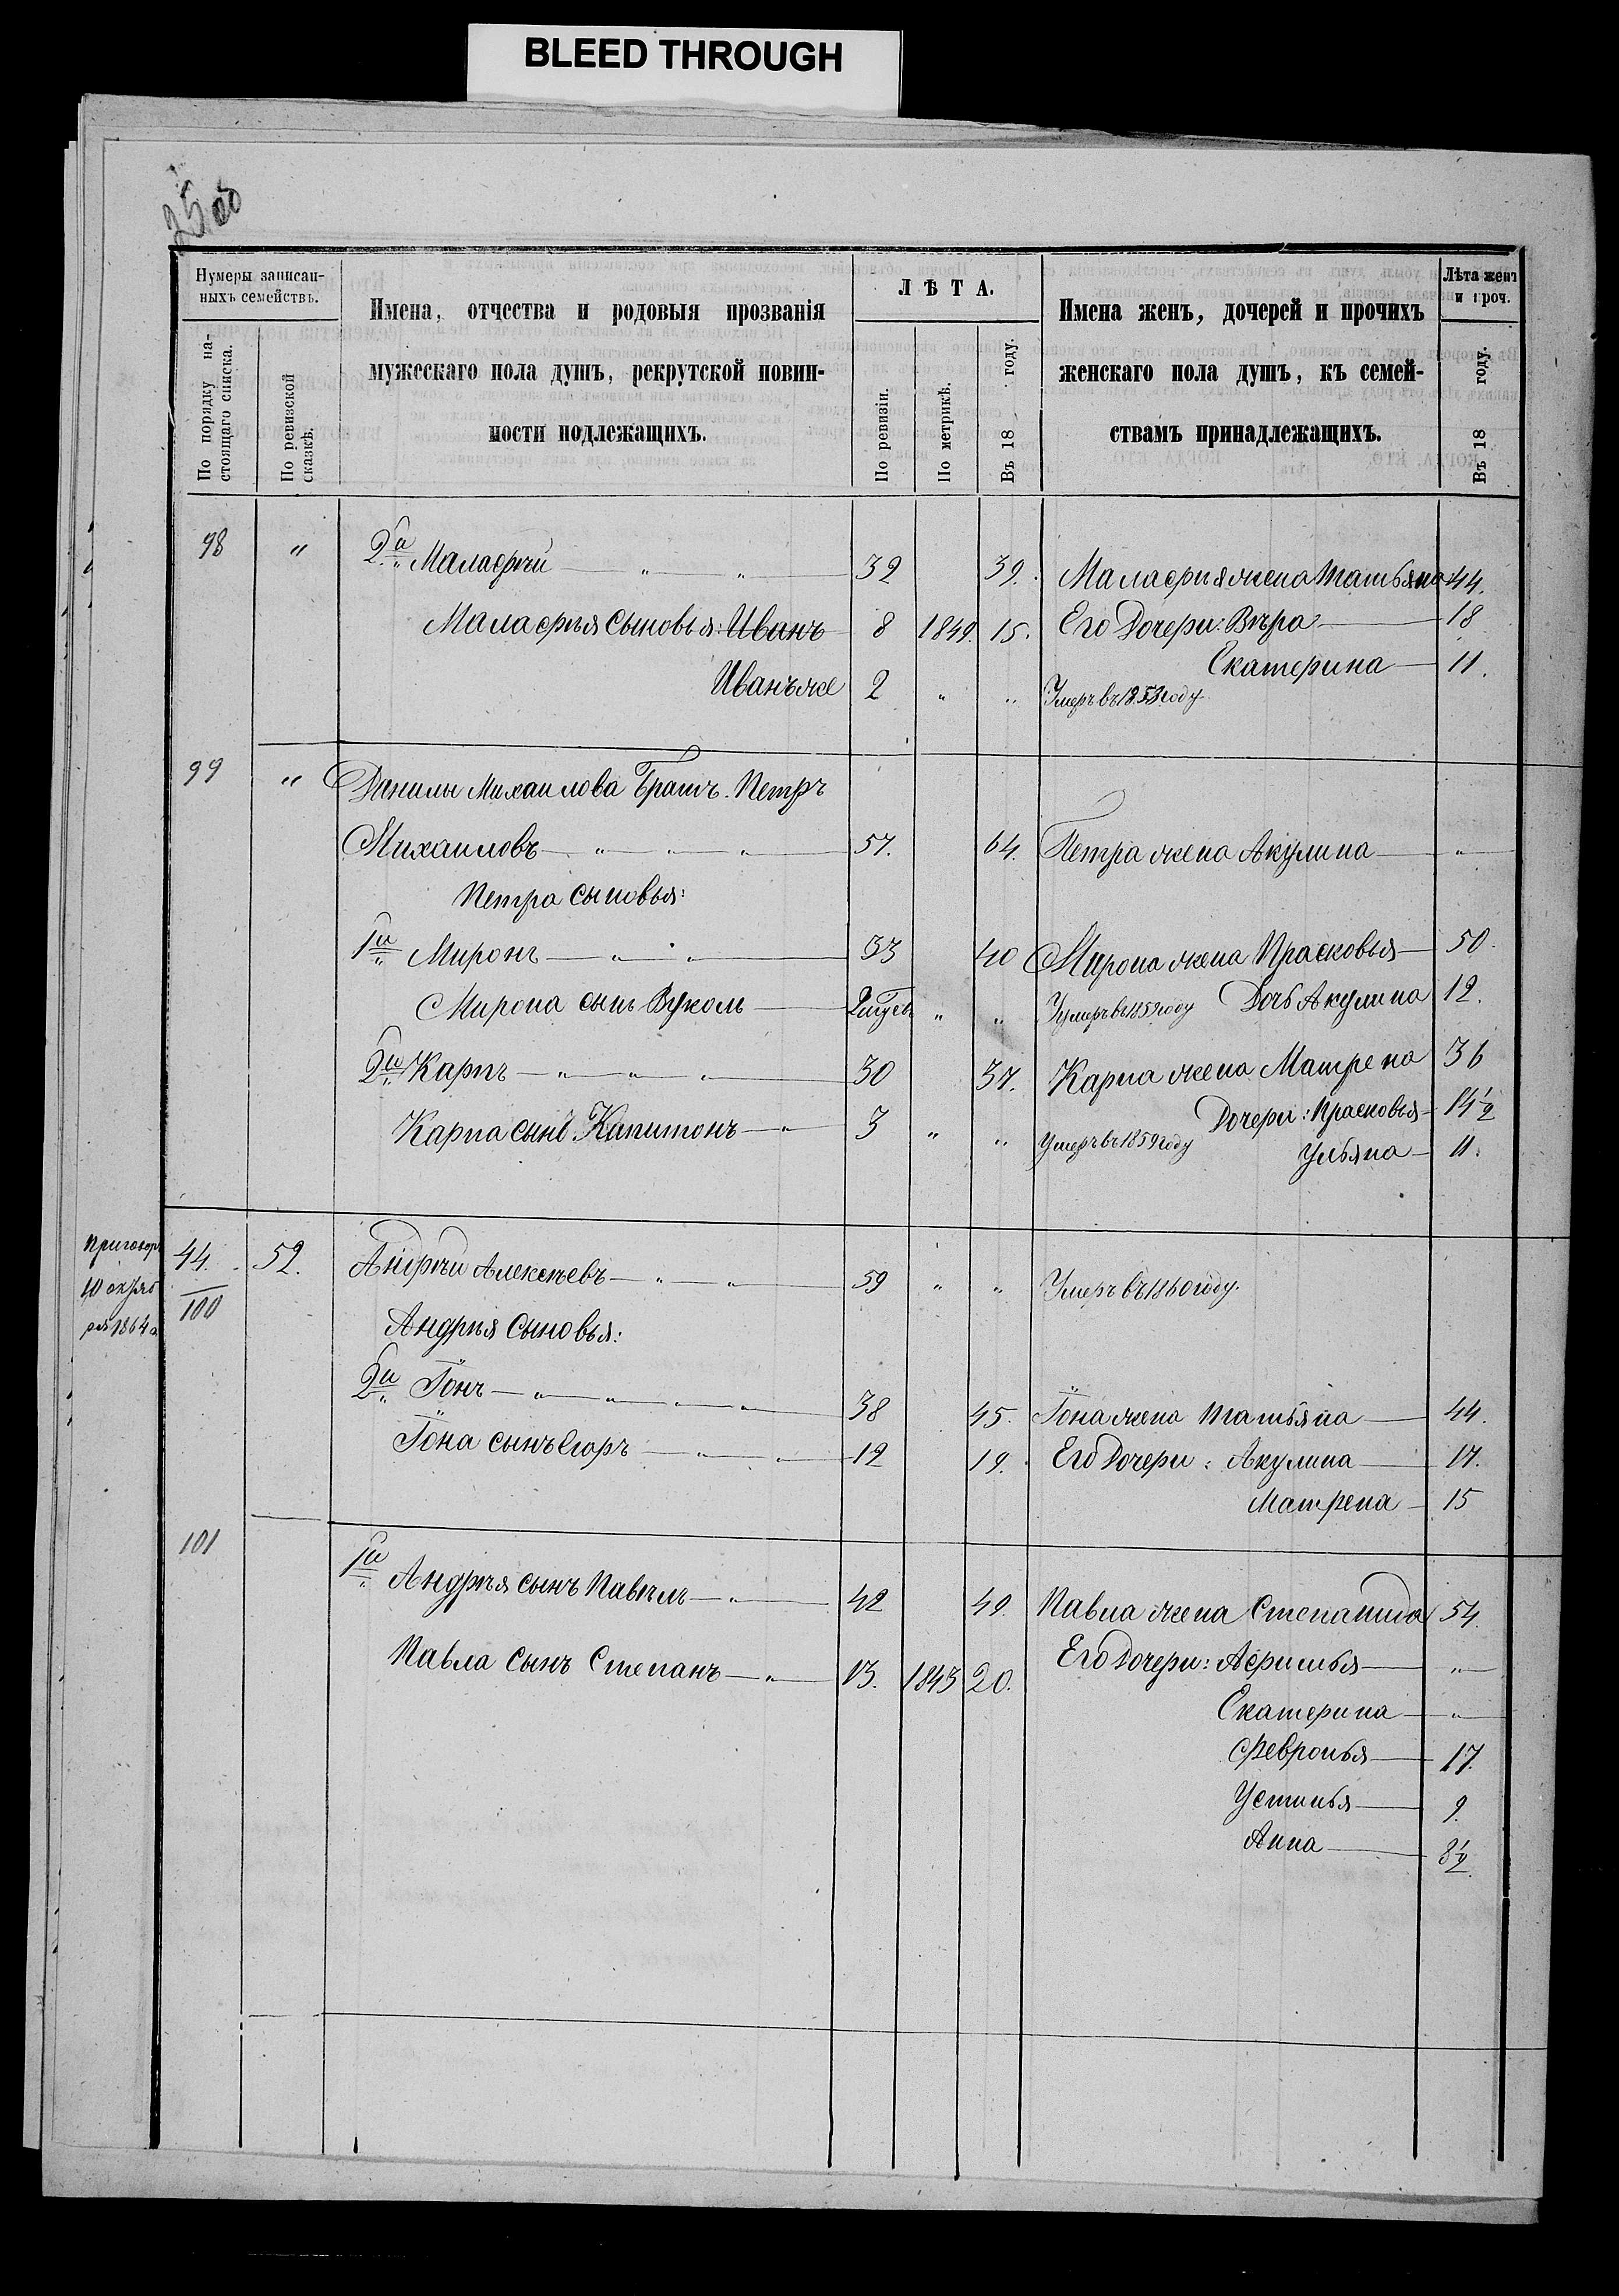 BLEED THROUGH
Нумеры записан-
ныхъ семействъ.
По порядку на-
стоящаго списка.
По ревизской
сказкѣ.
Имена, отчества и родовыя прозванія
мужескаго пола душъ, рекрутской повин-
ности подлежащихъ.
ЛѢТА.
По ревизіи.
По метрикѣ.
Въ 18 году.
Имена женъ, дочерей и прочихъ
женскаго пола душъ, къ семей-
ствамъ принадлежащихъ.
Лѣта женъ
и проч.
Въ 18 году.
98 " 2й Малафѣй 32 39. Малафѣя жена Татьяна 44.
Малафѣя сыновья: Иванъ 8 1849. 15. Его Дочери: Вѣра 18
Екатерина 11.
Иванъ же 2 " " Умеръ въ 1858 году
99 " Данилы Михаилова Братъ. Петръ
Михаиловъ 57. 64. Петра жена Акулина "
Петра сыновья:
1й Миронъ 33 40 Мирона жена Прасковья 50.
Мирона сынъ Вуколъ " " Умеръ въ 1859 году Дочь Акулина 12.
2й Карпъ 30 37. Карпа жена Матрена 36
Дочери: Прасковья 14½
Карпа сынъ Капитонъ 3 " " Умеръ въ 1859 году
Ульяна 11.
Приговоръ
10 октяб
ря 1864 г.
44. 52. Андрѣй Алексѣевъ 59 " " Умеръ въ 1860 году.
100
Андрѣя Сыновья:
2й Іонъ 38 45. Іона жена Татьяна 44.
Іона сынъ Егоръ 12 19. Его Дочери: Акулина 17.
Матрена 15
101
1й Андрѣя сынъ Павелъ 42 49. Павла жена Степанида 54.
Павла Сынъ Степанъ 13. 1843 20. Его Дочери: Афимья "
Екатерина "
Февронья 17.
Устинья 9.
Анна 8½.